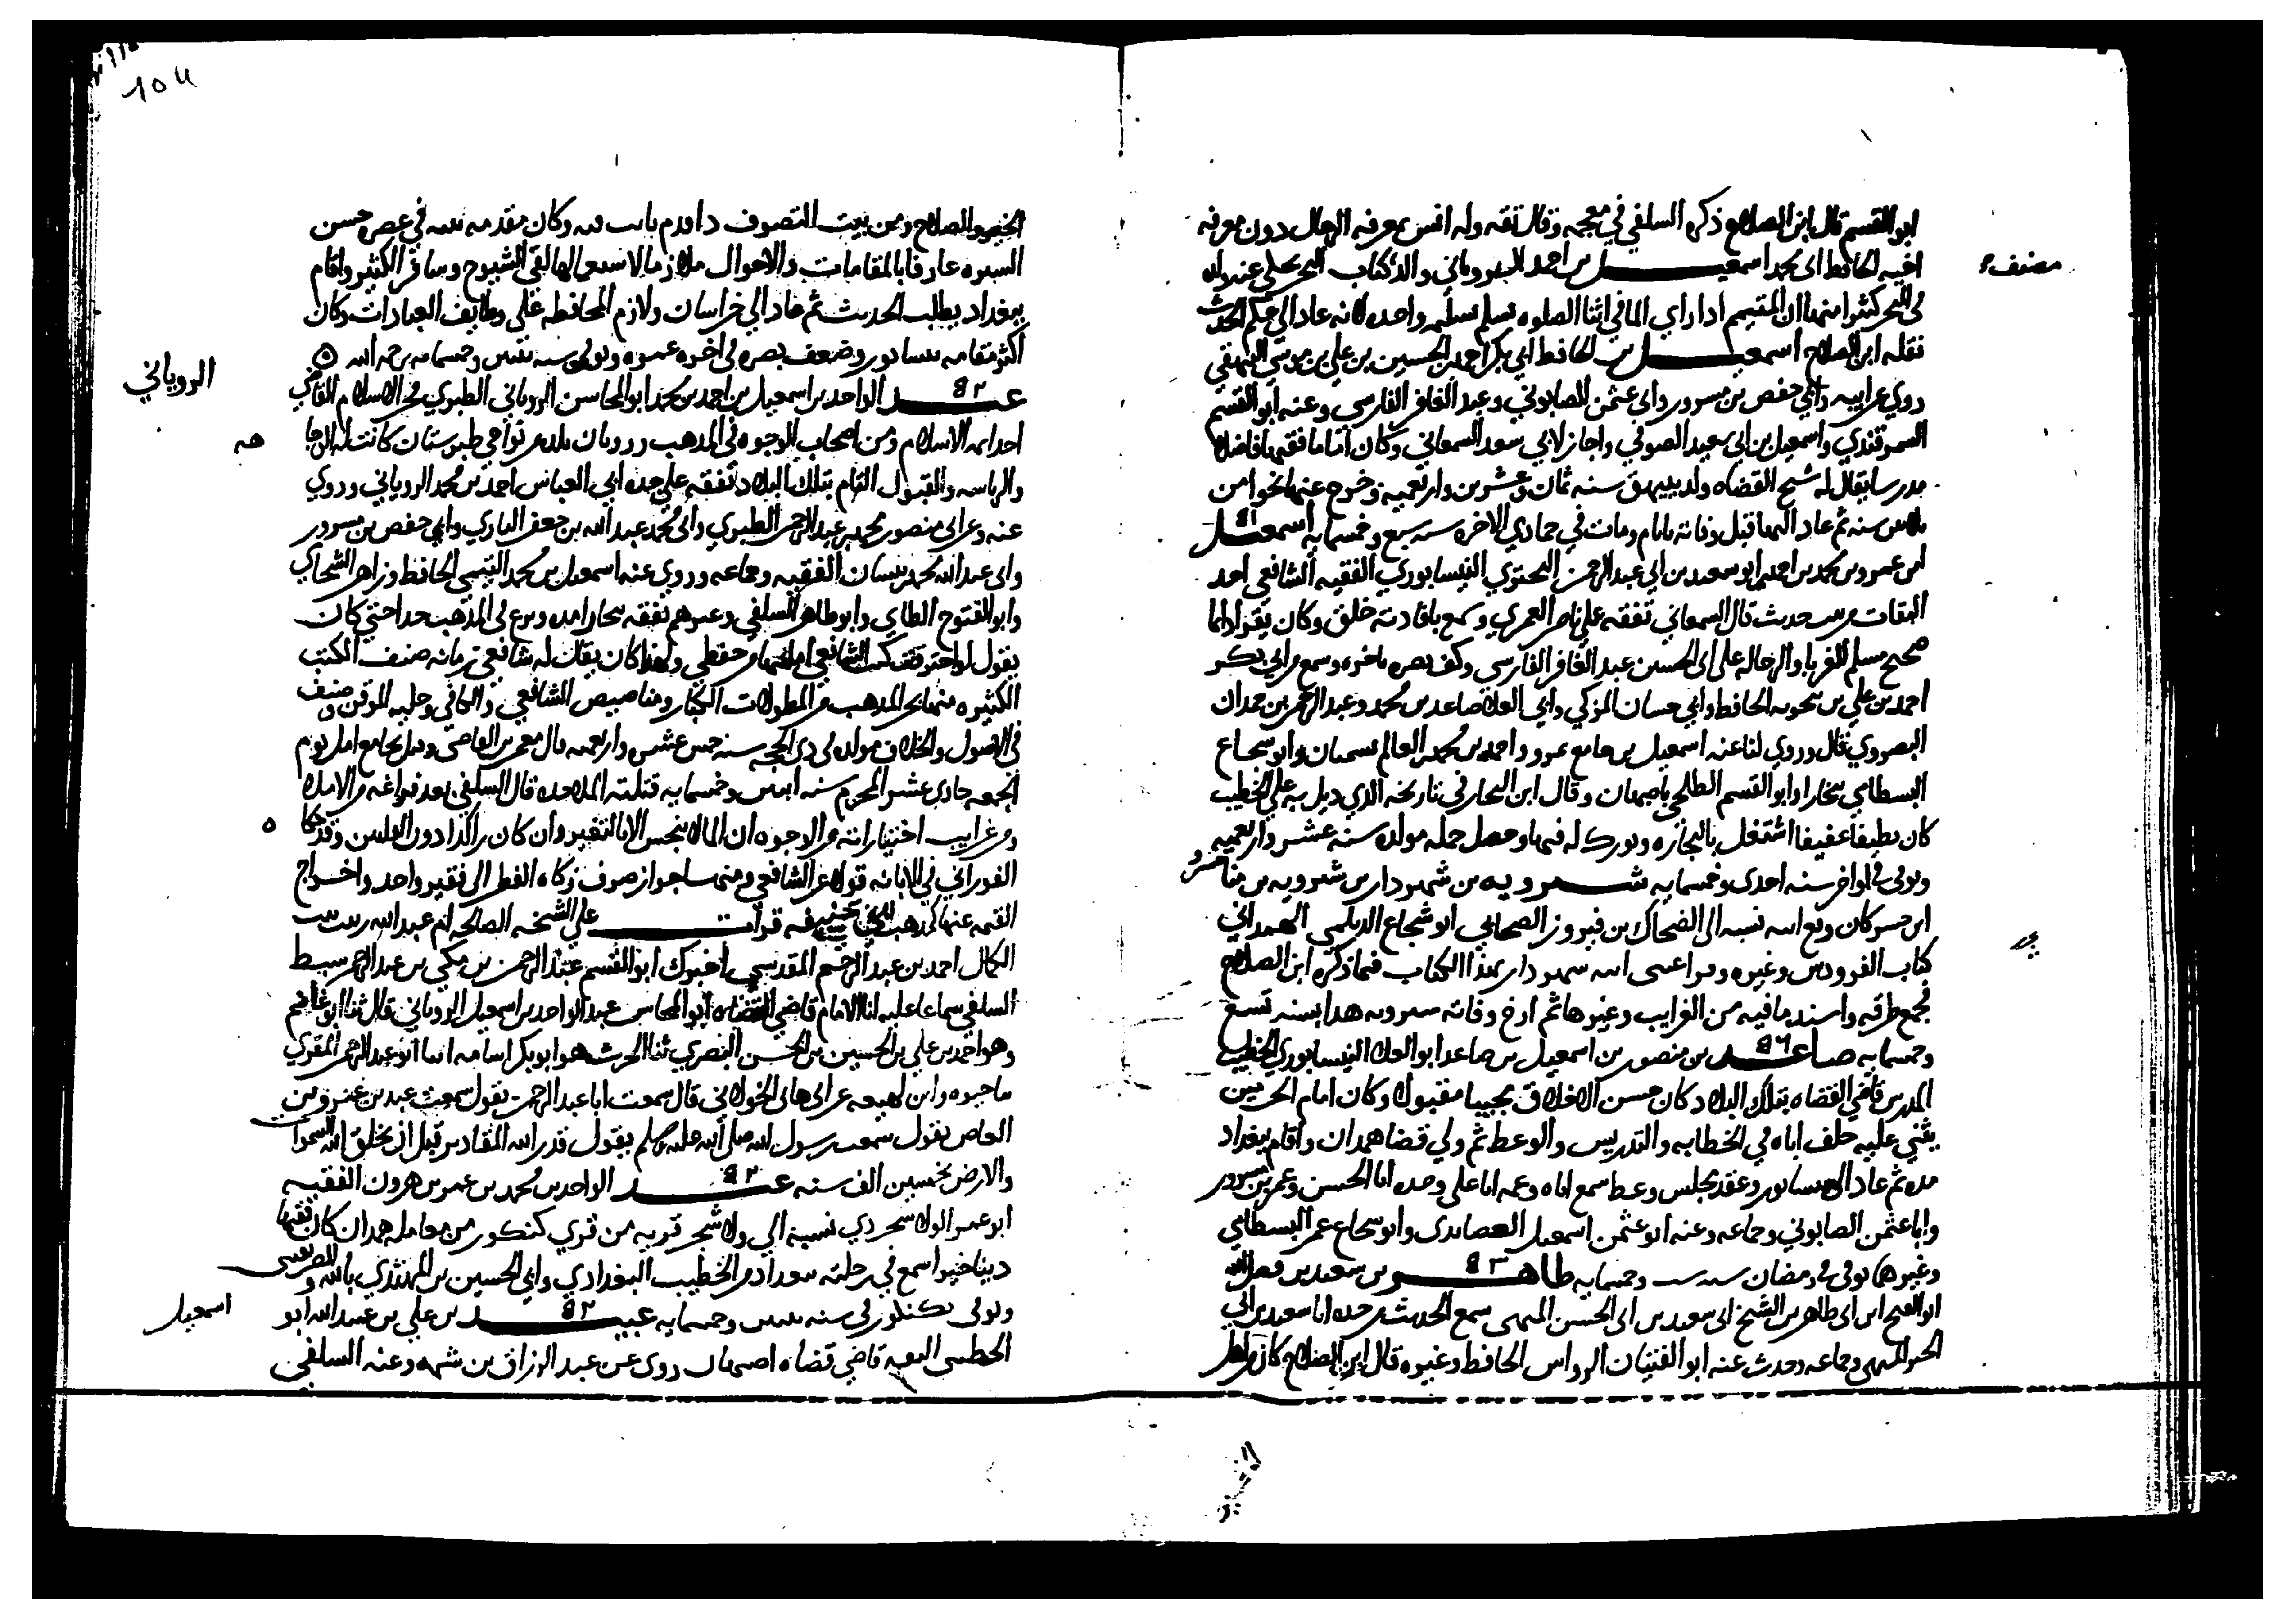 ابو القسم قال ابن الصلاح ذكره السلفي في معجمه وقال ثقه وله انس بمعرفه الرجال دون معرفه
اخيه الحافظ ابى محمد اسمعيل بن احمد الروياني والد كتاب البحر حكى عنه ولده
مصنف
في البحر كثيرا منها ان المتيمم اذا راي الما في اثنا الصلوه تسلم تسليمه واحده لانه عاد الي حكم الحدث
نقله ابن الصلاح اسمعيل بن الحافظ ابي بكر احمد بن الحسين بن علي بن موسي البيهقي
روي عن ابيه وابي حفص بن مسرور وابي عثمن الصابوني وعبد الغافر الفارسي وعنه ابو القسم
السمرقندي واسمعيل بن ابي سعيد الصوفي واجاز لابي سعد السمعاني وكان اماما فقيها فاضلا
مدرسا يقال له شيخ القضاه ولد ببيهق سنه ثمان وعشرين واربعميه وخرج عنها نحوا من
ثلاثين سنه ثم عاد اليها قبل وفاته بايام ومات في جمادي الاخره سنه سبع وخمسمايه اسمعيل
ابن عمرو بن محمد بن احمد ابو سعيد بن ابي عبد الرحمن البحتري النيسابوري الفقيه الشافعي احد
الثقات من بيت حديث قال السمعاني تفقه علي ناصر العمري وسمع بافادته خلق وكان يقرا دائما
صحيح مسلم للغربا والرحاله على ابى الحسين عبد الغافر الفارسي وكف بصره باخره وسمع من ابي بكر
احمد بن علي بن منجويه الحافظ وابي حسان المزكي وابي العلا صاعد بن محمد وعبد الرحمن بن حمدان
النصروي قال وروي لنا عنه اسمعيل بن جامع بمرو واحمد بن محمد العالم بسمنان وابو شجاع
البسطامي ببخارا وابو القسم الطلحي باصبهان وقال ابن النجار في تاريخه الذي ذيل به على الخطيب
كان نظيفا عفيفا اشتغل بالتجاره وبورك له فيها وحصل جمله مولده سنه عشر واربعميه
وتوفى في اواخر سنه احدى وخمسمايه شيرويه بن شهردار بن شيرويه بن فناخسرو
ابن خسركان ورفع نسبه الى الضحاك بن فيروز الصحابي ابو شجاع الديلمي الهمداني
كتاب الفردوس وغيره وقد اعتنى ابنه شهردار بهذا الكتاب فيما ذكره ابن الصلاح
فجمع طرقه واسند ما فيه من الغرايب وغيرها ثم ارخ وفاته شيرويه هذا بسنه تسع
وخمسمايه صاعد بن منصور بن اسمعيل بن صاعد ابو العلا النيسابوري الخطيب
المدرس قاضي القضاه بتلك البلاد كان حسن الاخلاق محببا مقبولا وكان امام الحرمين
يثني عليه خلف اباه في الخطابه والتدريس والوعظ ثم ولي قضا همدان واقام ببغداد
مده ثم عاد الى نيسابور وعقد مجلس وعظ سمع اباه وعمه ابا على وجده ابا الحسن وعمر بن مسرور
وابا عثمن الصابوني وجماعه وعنه ابو عثمن اسمعيل العصايدى وابو شجاع عمر البسطامي
وغيرهما توفى في رمضان سنه ست وخمسمايه طاهر بن سعيد بن فضل الله
ابو الفتح ابن ابى طاهر بن الشيخ ابى سعيد بن ابى الحسن الميهنى سمع الحديث من جده ابا سعيد بن ابي
الخير الميهنى وجماعه وحدث عنه ابو الفتيان الرواسى الحافظ وغيره قال ابن الصلاح كان من اهل
الخير والصلاح ومن بيت التصوف وكان مقدم في عصره حسن
السيره عارفا بالمقامات والاحوال لقي الشيوخ وسافر الكثير واقام
ببغداد يطلب الحديث ثم عاد الي خراسان ولازم المحافظه على وظايف العبادات وكان
اكثر مقامه بنيسابور وضعف بصره في اخره عمره وتوفى سنه ثنتين وخمسمايه رحمه الله
الروياني
عبد الواحد بن اسمعيل بن احمد بن محمد ابو المحاسن الروياني الطبري فخر الاسلام القاضي
احد ايمه الاسلام ومن اصحاب الوجوه في المذهب ورويان بلده من نواحي طبرستان كانت له الوجاهه
والرياسه والقبول التام بتلك البلاد تفقه علي جده ابي العباس احمد بن محمد الروياني وروي
عنه وعن ابى منصور محمد بن عبد الرحمن الطبري وابى محمد عبد الله بن جعفر الخبازي وابي حفص بن مسرور
وابى عبد الله محمد بن بيان الفقيه وجماعه وروي عنه اسمعيل بن محمد التيمي الحافظ وزاهر الشحامي
وابو الفتوح الطاي وابو طاهر السلفي وغيرهم تفقه ببخارا مده وبرع في المذهب جدا حتي كان
يقول لو احترقت كتب الشافعي امليتها من حفظي ولهذا كان يقال له شافعي زمانه صنف الكتب
الكثيره منها بحر المذهب من المطولات الكبار ومناصيص الشافعي والكافي وحليه الموقن وصنف
في الاصول والخلاف مولده في ذى الحجه سنه خمس عشره واربعميه قال معمر بن الفاخر وقتل بجامع امل يوم
الجمعه حادي عشر المحرم سنه اثنتين وخمسمايه قتلته الملاحده قال السلفي بعد فراغه من الاملا
ومن غرايب اختياراته من الاوجه ان الما لا ينجس الا بالتغير وان كان راكدا دون القلتين وقد حكاه
الفوراني في الابانه قولا عن الشافعي ومنها جواز صرف زكاه الفطر الى فقير واحد واخراج
القيمه عنها كمذهب ابي حنيفه قرات علي الشيخه الصالحه ام عبد الله زينب بنت
الكمال احمد بن عبد الرحيم المقدسي اخبرك ابو القسم عبد الرحمن بن مكي بن عبد الرحمن سبط
السلفي سماعا عليه انا الامام قاضي القضاه ابو المحاسن عبد الواحد بن اسمعيل الروياني قال ثنا ابو غانم
وهو احمد بن علي بن الحسين بن الحسن البصري ثنا الحرث هو ابو بكر اسامه انا ابو عبد الرحمن المقري
ثنا حيوه وابن لهيعه عن ابى هانى الخولاني قال سمعت ابا عبد الرحمن يقول سمعت عبد الله بن عمرو بن
العاص يقول سمعت رسول الله صلى الله عليه وسلم يقول قدر الله المقادير قبل ان يخلق الله السموات
والارض بخمسين الف سنه عبد الواحد بن محمد بن عمر بن هرون الفقيه
ابو عمر الولاشجردي نسبة الي ولاشجر قريه من قري كنكور من معامله همدان كان فقيها
دينا خيرا سمع في رحلته ببغداد من الخطيب البغدادي وابي الحسين بن المهتدي بالله
وتوفى بكنكور في سنه ثنتين وخمسمايه عبيد الله بن علي بن عبيد الله ابو
اسمعيل
الخطيبى الفقيه قاضي قضاه اصبهان روى عن عبد الرزاق بن شمه وعنه السلفي